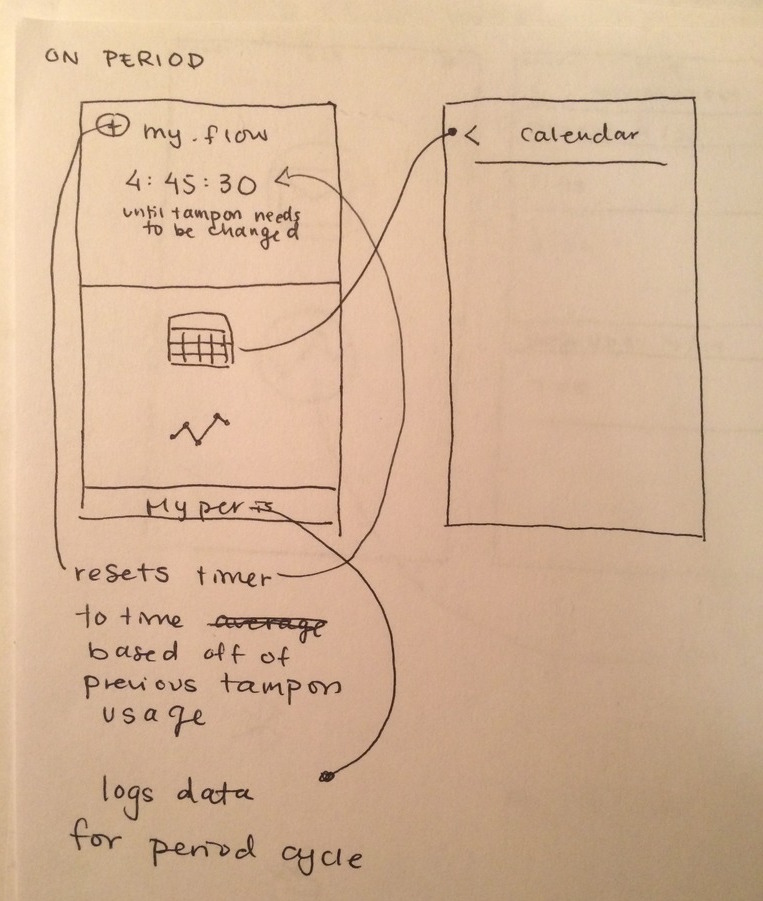 ON PERIOD
+ my.flow
4:45:30
until tampon needs
to be changed
< calendar
My per
resets timer
to time average
based off of
previous tampon
usage
logs data
for period cycle